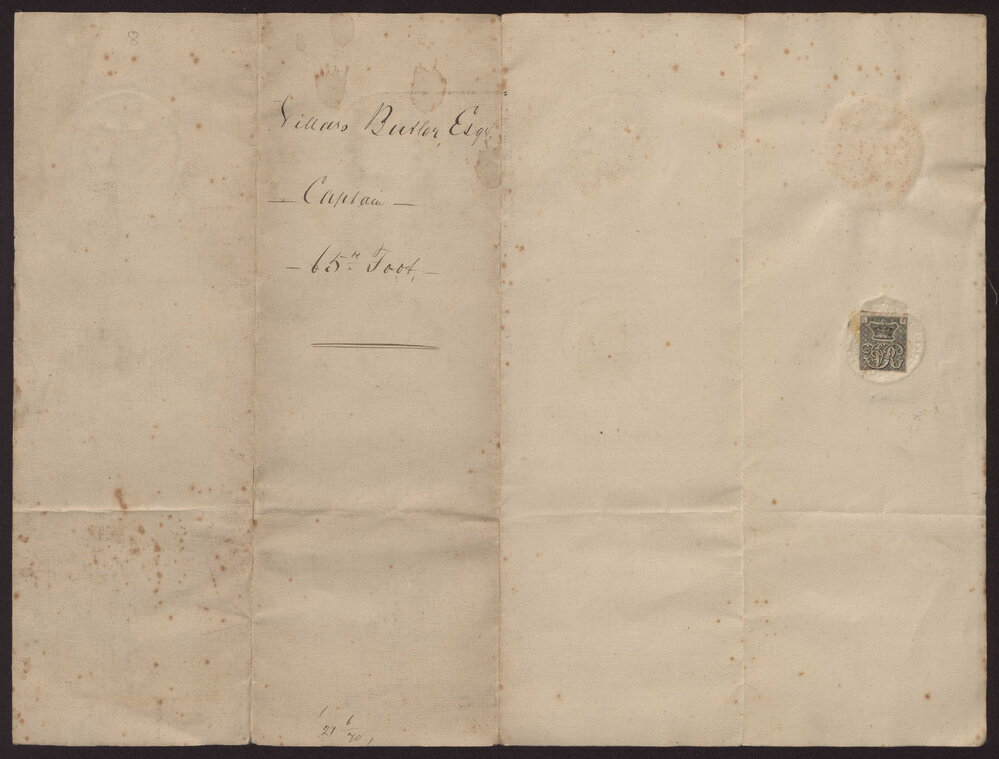 8
Villars Butler, Esqr.
— Captain —
— 65th Foot, —
21 6/70
VR